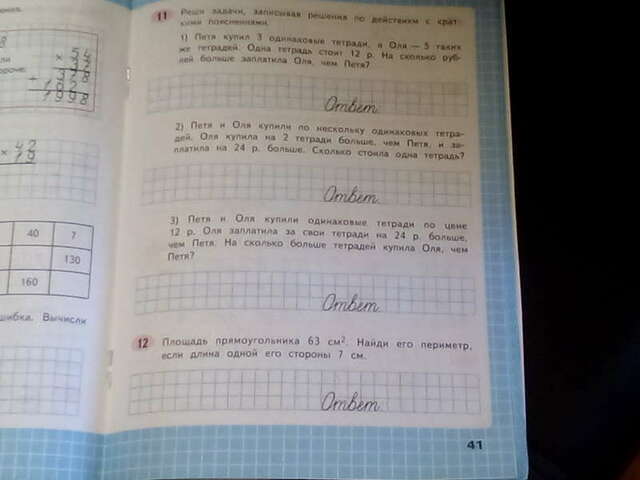 11 Реши задачи, записывая решения по действиям с крат-
кими пояснениями.
1) Петя купил 3 одинаковые тетради, а Оля — 5 таких
же тетрадей. Одна тетрадь стоит 12 р. На сколько руб-
лей больше заплатила Оля, чем Петя?
Ответ
2) Петя и Оля купили по нескольку одинаковых тетра-
дей. Оля купила на 2 тетради больше, чем Петя, и за-
платила на 24 р. больше. Сколько стоила одна тетрадь?
Ответ
3) Петя и Оля купили одинаковые тетради по цене
12 р. Оля заплатила за свои тетради на 24 р. больше,
чем Петя. На сколько больше тетрадей купила Оля, чем
Петя?
Ответ
12 Площадь прямоугольника 63 см². Найди его периметр,
если длина одной его стороны 7 см.
Ответ
41
8
ли
роне
× 54
1998
× 42
19
40 7
130
160
шибка. Вычисли